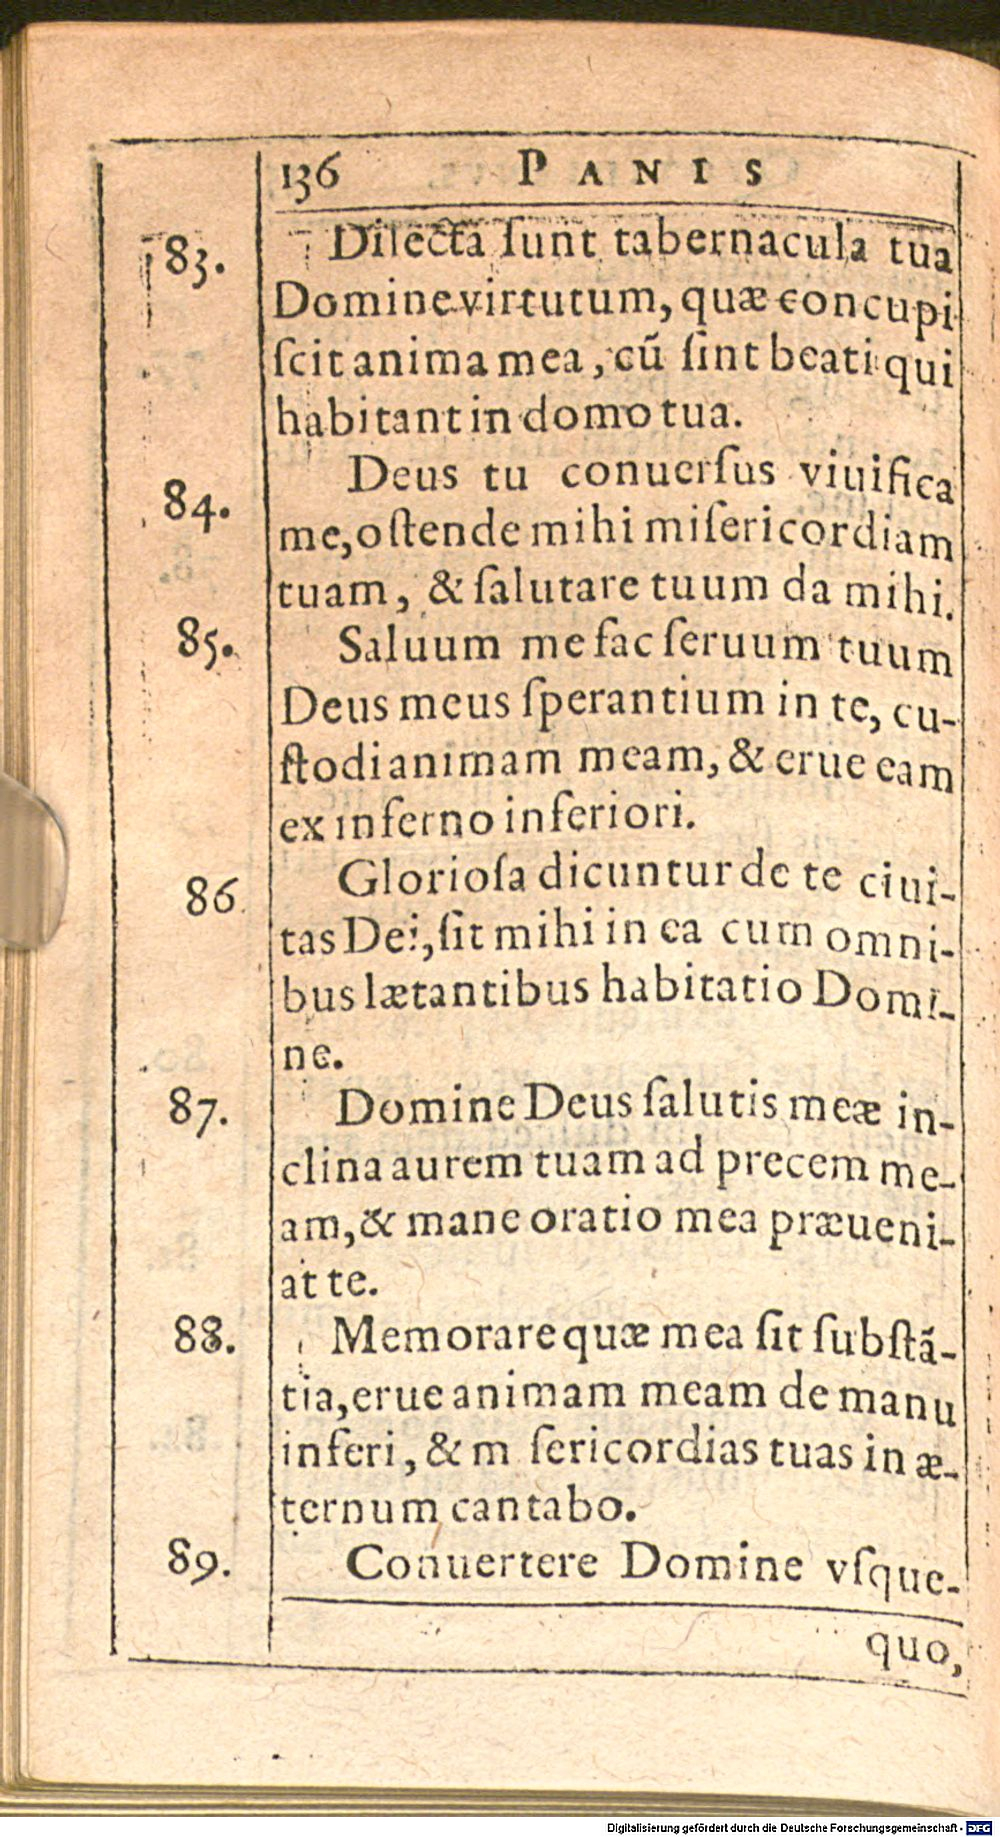 136 PANIS
83. Dilecta ſunt tabernacula tua
Domine virtutum, quæ concupi
ſcit anima mea, cũ ſint beati qui
habitant in domo tua.
84. Deus tu conuerſus viuifica
me, oſtende mihi miſericordiam
tuam, & ſalutare tuum da mihi.
85. Saluum me fac ſeruum tuum
Deus meus ſperantium in te, cu-
ſtodi animam meam, & erue eam
ex inferno inferiori.
86. Glorioſa dicuntur de te ciui-
tas Dei, ſit mihi in ea cum omni-
bus lætantibus habitatio Domi-
ne.
87. Domine Deus ſalutis meæ in-
clina aurem tuam ad precem me-
am, & mane oratio mea præueni-
at te.
88. Memorare quæ mea ſit ſubſtã-
tia, erue animam meam de manu
inferi, & m ſericordias tuas in æ-
ternum cantabo.
89. Conuertere Domine vſque-
quo,
Digitalisierung gefördert durch die Deutsche Forschungsgemeinschaft - DFG